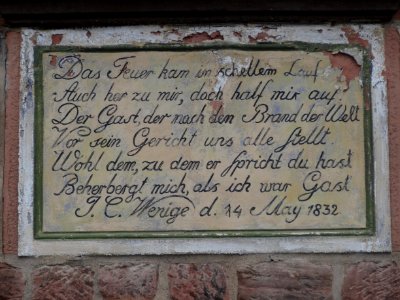 Das Feuer kam in schellem Lauf
Auch her zu mir, doch half mir auf
Der Gast, der nach den Brand der Welt
Vor sein Gericht uns alle stellt.
Wohl dem, zu dem er spricht du hast
Beherbergt mich, als ich war Gast
J. C. Wenige d. 14 May 1832